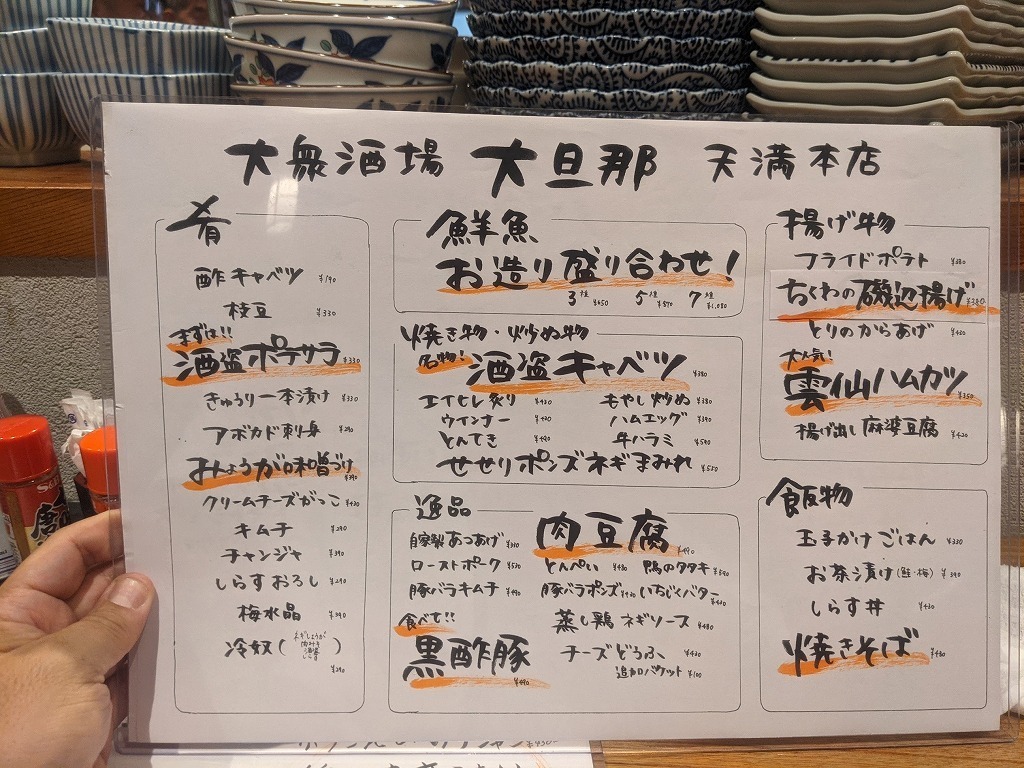 大衆酒場 大旦那 天満本店
肴
酢キャベツ ¥190
枝豆 ¥330
まずは!!
酒盗ポテサラ ¥330
きゅうり一本漬け ¥330
アボカド刺身 ¥290
みょうが味噌づけ ¥390
クリームチーズがっこ ¥420
キムチ ¥290
チャンジャ ¥390
しらすおろし ¥290
梅水晶 ¥390
冷奴(ネギしょうが 肉みそ 酒盗 しらす)
¥290
鮮魚
お造り盛り合わせ!
3種 ¥650 5種 ¥870 7種 ¥1,080
焼き物・炒め物
名物!
酒盗キャベツ ¥380
エイヒレ炙り ¥430 もやし炒め ¥380
ウインナー ¥420 ハムエッグ ¥390
とんてき ¥490 牛ハラミ ¥590
せせりポンズネギまみれ ¥550
逸品
自家製あつあげ 肉豆腐 ¥490
ローストポーク ¥520 とんぺい ¥480 鴨のタタキ ¥590
豚バラキムチ ¥490 豚バラポンズ いちじくバター
食べて!!
黒酢豚 ¥490
蒸し鶏ネギソース ¥480
チーズどうふ ¥420
追加バケット ¥100
揚げ物
フライドポテト ¥380
ちくわの磯辺揚げ ¥380
とりのからあげ ¥450
大人気!
雲仙ハムカツ ¥350
揚げ出し麻婆豆腐 ¥420
飯物
玉子かけごはん ¥330
お茶漬け(鮭・梅) ¥390
しらす丼 ¥430
焼きそば ¥480